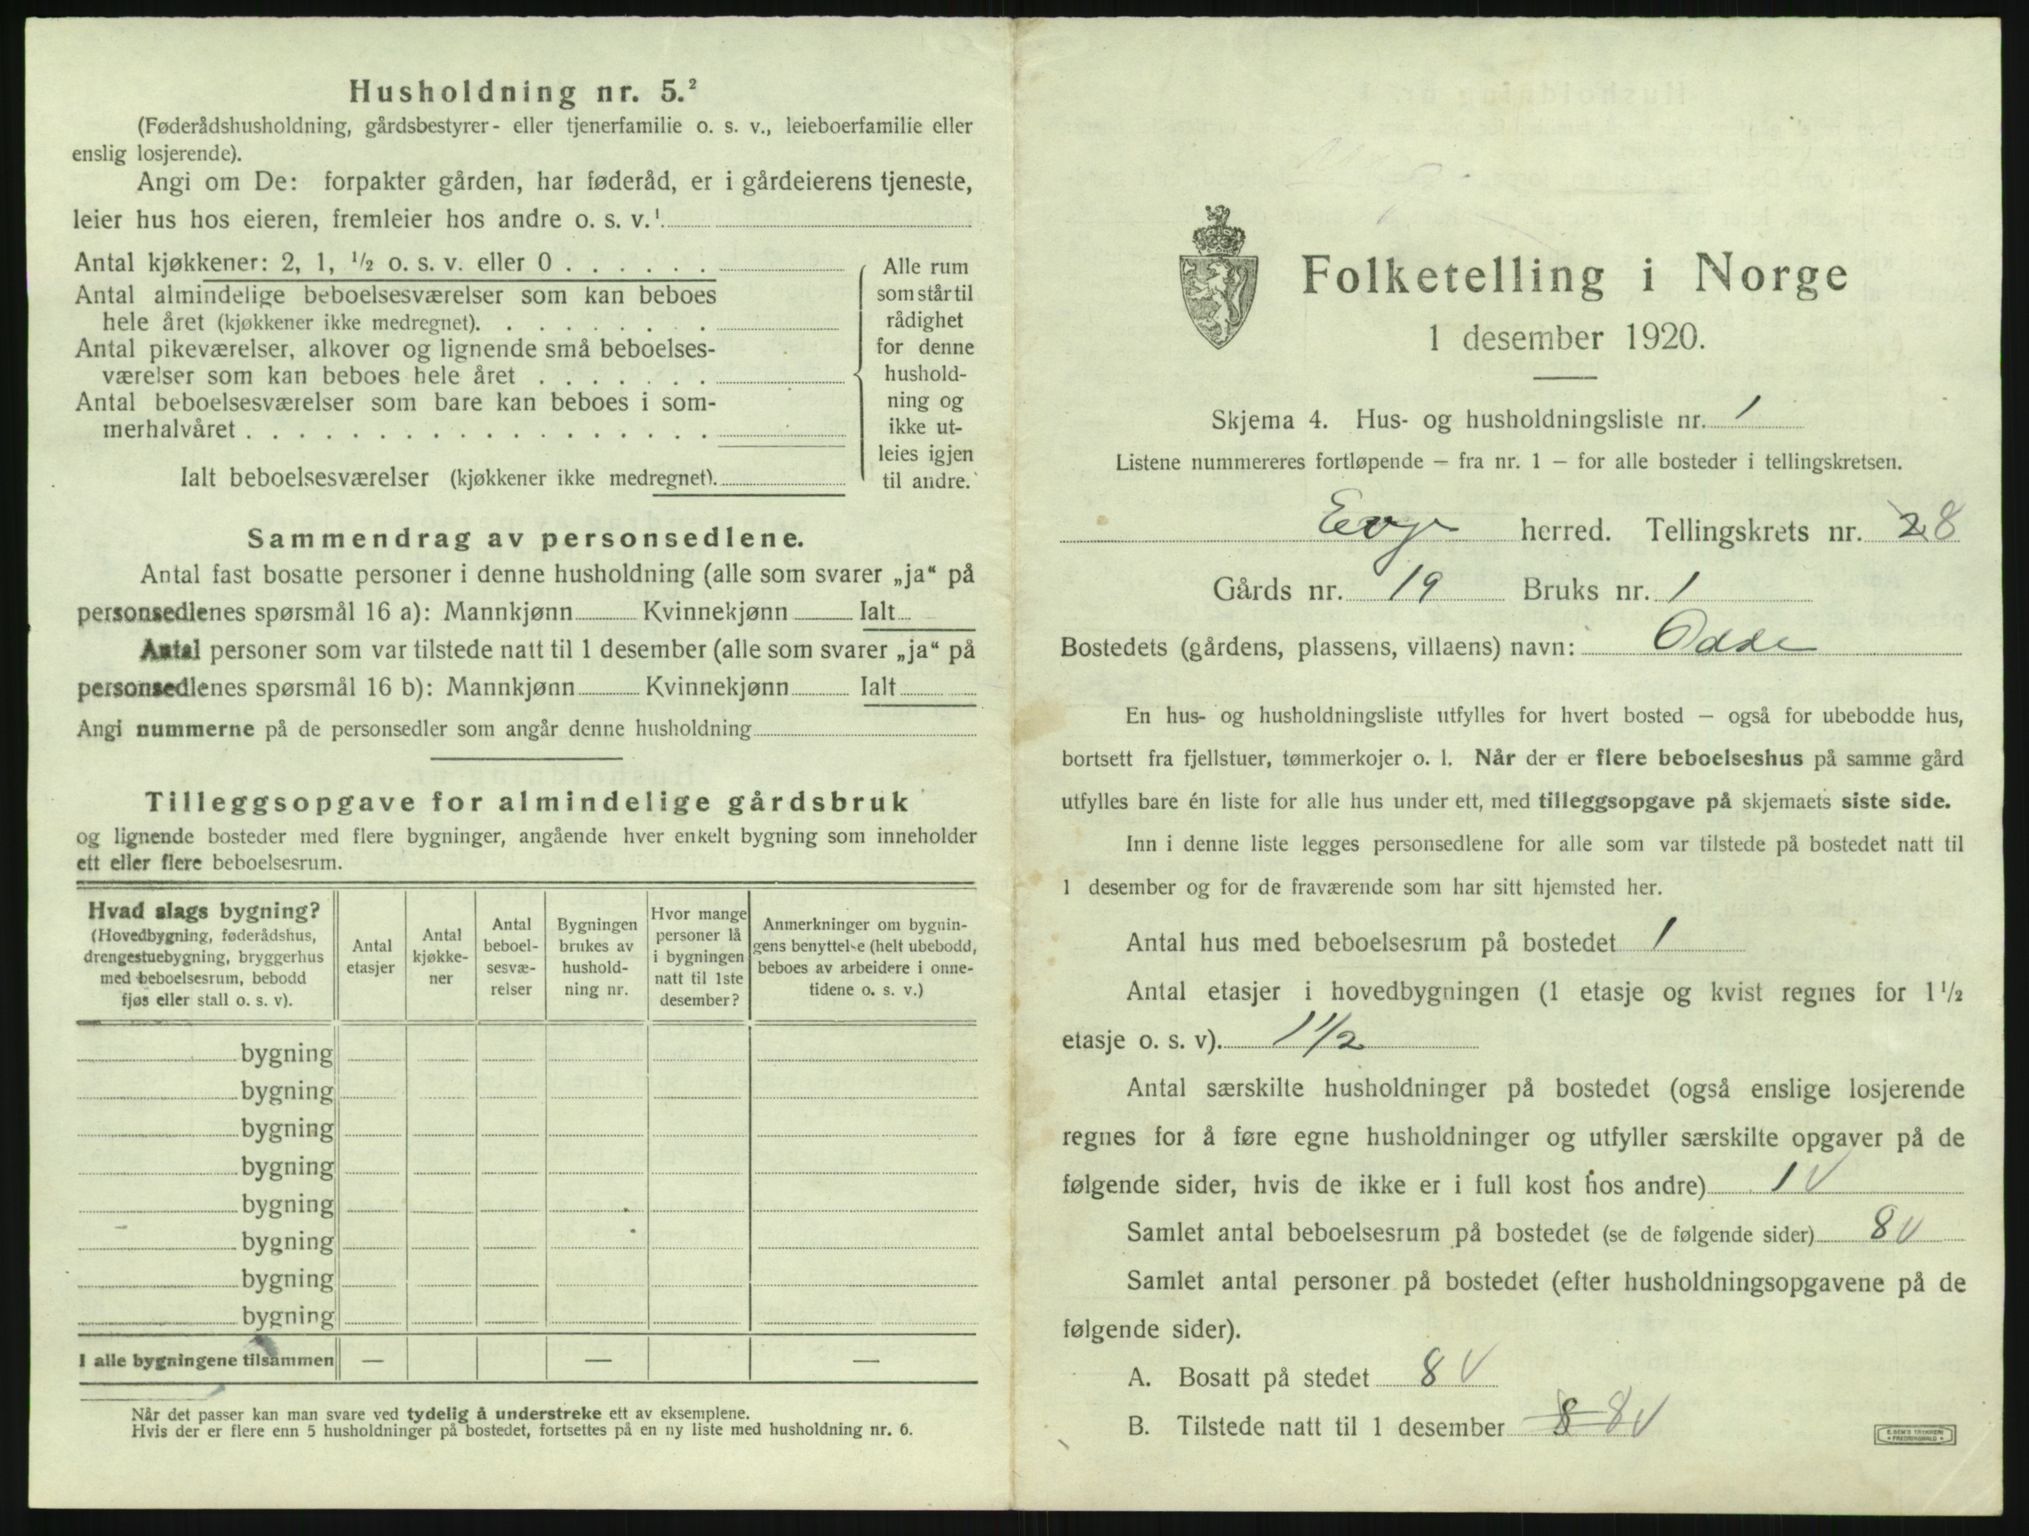 Husholdning nr. 5.²
(Føderådshusholdning, gårdsbestyrer- eller tjenerfamilie o. s. v., leieboerfamilie eller
enslig losjerende).
Angi om De: forpakter gården, har føderåd, er i gårdeierens tjeneste,
leier hus hos eieren, fremleier hos andre o. s. v.¹
Antal kjøkkener: 2, 1, ½ o. s. v. eller 0 . . . . . .
Antal almindelige beboelsesværelser som kan beboes
hele året (kjøkkener ikke medregnet). . . . . . . . .
Antal pikeværelser, alkover og lignende små beboelses-
værelser som kan beboes hele året . . . . . . .
Antal beboelsesværelser som bare kan beboes i som-
merhalvåret . . . . . . . . . . . . . . . . . .
Ialt beboelsesværelser (kjøkkener ikke medregnet).
Alle rum
som står til
rådighet
for denne
hushold-
ning og
ikke ut-
leies igjen
til andre.
Sammendrag av personsedlene.
Antal fast bosatte personer i denne husholdning (alle som svarer „ja“ på
personsedlenes spørsmål 16 a): Mannkjønn Kvinnekjønn Ialt
Antal personer som var tilstede natt til 1 desember (alle som svarer „ja“ på
personsedlenes spørsmål 16 b): Mannkjønn Kvinnekjønn Ialt
Angi nummerne på de personsedler som angår denne husholdning
Tilleggsopgave for almindelige gårdsbruk
og lignende bosteder med flere bygninger, angående hver enkelt bygning som inneholder
ett eller flere beboelsesrum.
Hvad slags bygning?
(Hovedbygning, føderådshus,
drengestuebygning, bryggerhus
med beboelsesrum, bebodd
fjøs eller stall o. s. v).
Antal
etasjer
Antal
kjøkke-
ner
Antal
beboel-
sesvæ-
relser
Bygningen
brukes av
hushold-
ning nr.
Hvor mange
personer lå
i bygningen
natt til 1ste
desember?
Anmerkninger om bygnin-
gens benyttelse (helt ubebodd,
beboes av arbeidere i onne-
tidene o. s. v.)
bygning
bygning
bygning
bygning
bygning
bygning
bygning
bygning
I alle bygningene tilsammen — — —
Når det passer kan man svare ved tydelig å understreke ett av eksemplene.
Hvis der er flere enn 5 husholdninger på bostedet, fortsettes på en ny liste med husholdning nr. 6.
Folketelling i Norge
1 desember 1920.
Skjema 4. Hus- og husholdningsliste nr. 1
Listene nummereres fortløpende — fra nr. 1 — for alle bosteder i tellingskretsen.
Evje herred. Tellingskrets nr. 2 8
Gårds nr. 19 Bruks nr. 1
Bostedets (gårdens, plassens, villaens) navn: Odde
En hus- og husholdningsliste utfylles for hvert bosted — også for ubebodde hus,
bortsett fra fjellstuer, tømmerkojer o. l. Når der er flere beboelseshus på samme gård
utfylles bare én liste for alle hus under ett, med tilleggsopgave på skjemaets siste side.
Inn i denne liste legges personsedlene for alle som var tilstede på bostedet natt til
1 desember og for de fraværende som har sitt hjemsted her.
Antal hus med beboelsesrum på bostedet 1
Antal etasjer i hovedbygningen (1 etasje og kvist regnes for 1½
etasje o. s. v). 1½
Antal særskilte husholdninger på bostedet (også enslige losjerende
regnes for å føre egne husholdninger og utfyller særskilte opgaver på de
følgende sider, hvis de ikke er i full kost hos andre) 1 V
Samlet antal beboelsesrum på bostedet (se de følgende sider) 8 V
Samlet antal personer på bostedet (efter husholdningsopgavene på de
følgende sider).
A. Bosatt på stedet 8 V
B. Tilstede natt til 1 desember 8 8 V
E. SEM'S TRYKKERI
FREDRIKSHALD